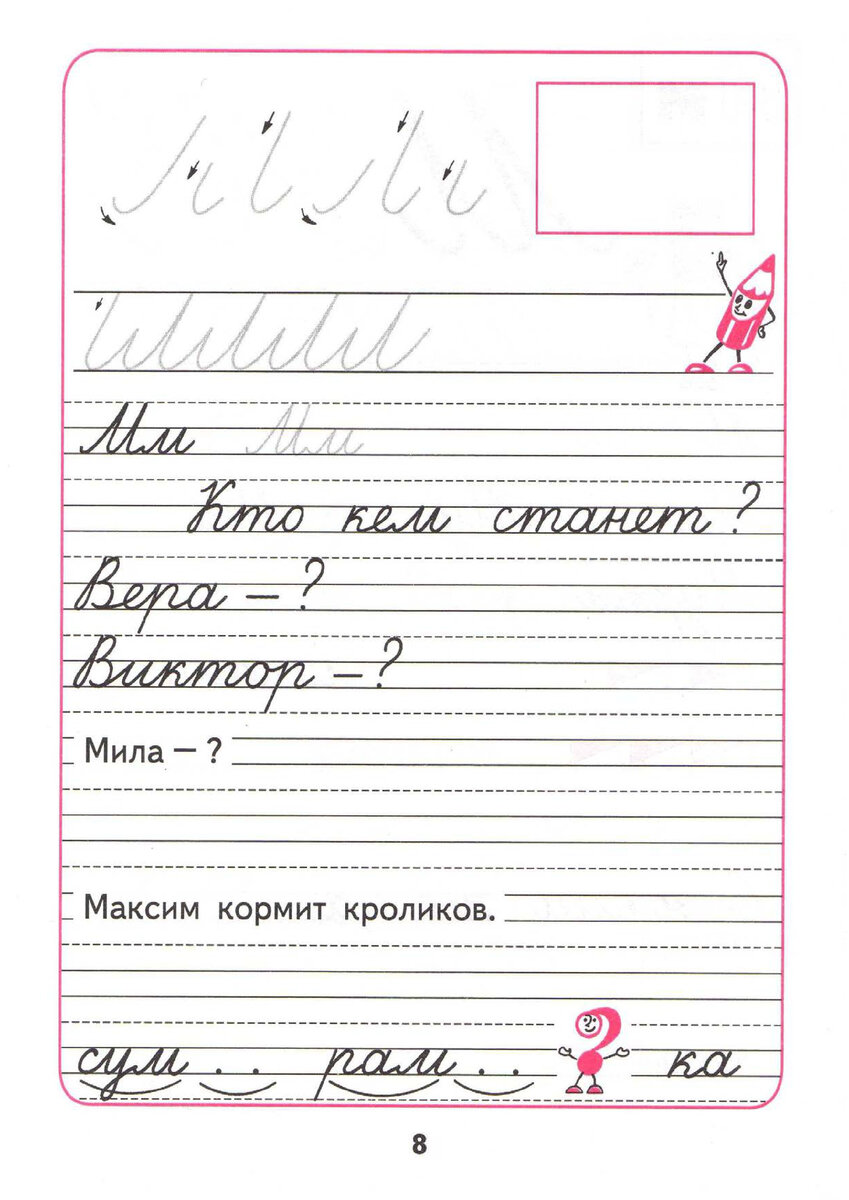 Мм Мм
Кто кем станет?
Вера – ?
Виктор – ?
Мила – ?
Максим кормит кроликов.
сум . . рам . . ? ка
8